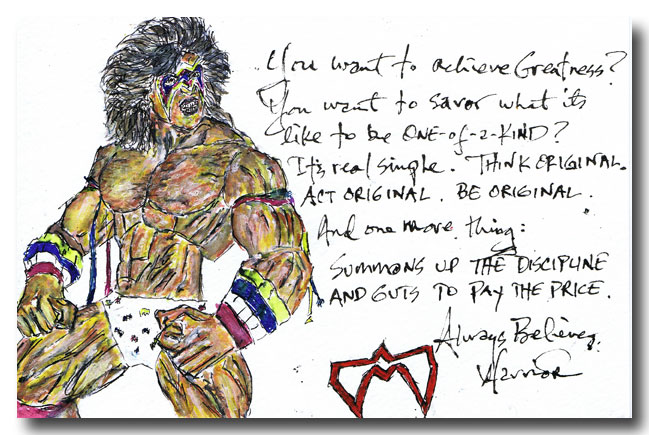 You want to achieve Greatness?
You want to savor what it's
like to be ONE-of-a-KIND?
It's real simple. THINK ORIGINAL.
ACT ORIGINAL. BE ORIGINAL.
And one more thing:
SUMMONS UP THE DISCIPLINE
AND GUTS TO PAY THE PRICE.
Always Believe,
Warrior